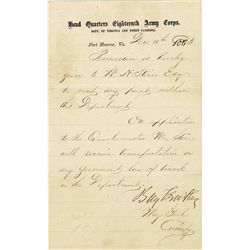 Head Quarters Eighteenth Army Corps,
DEPT. OF VIRGINIA AND NORTH CAROLINA,
Fort Monroe, Va. Dec 11th 1863
Permission is hereby
given to W. N. Esq
to visit any point within
this Department.
On application
to the Quartermaster Mr
will receive transportation on
any Government line of travel
in the Department
Benj F Butler
Maj Genl
Comdg